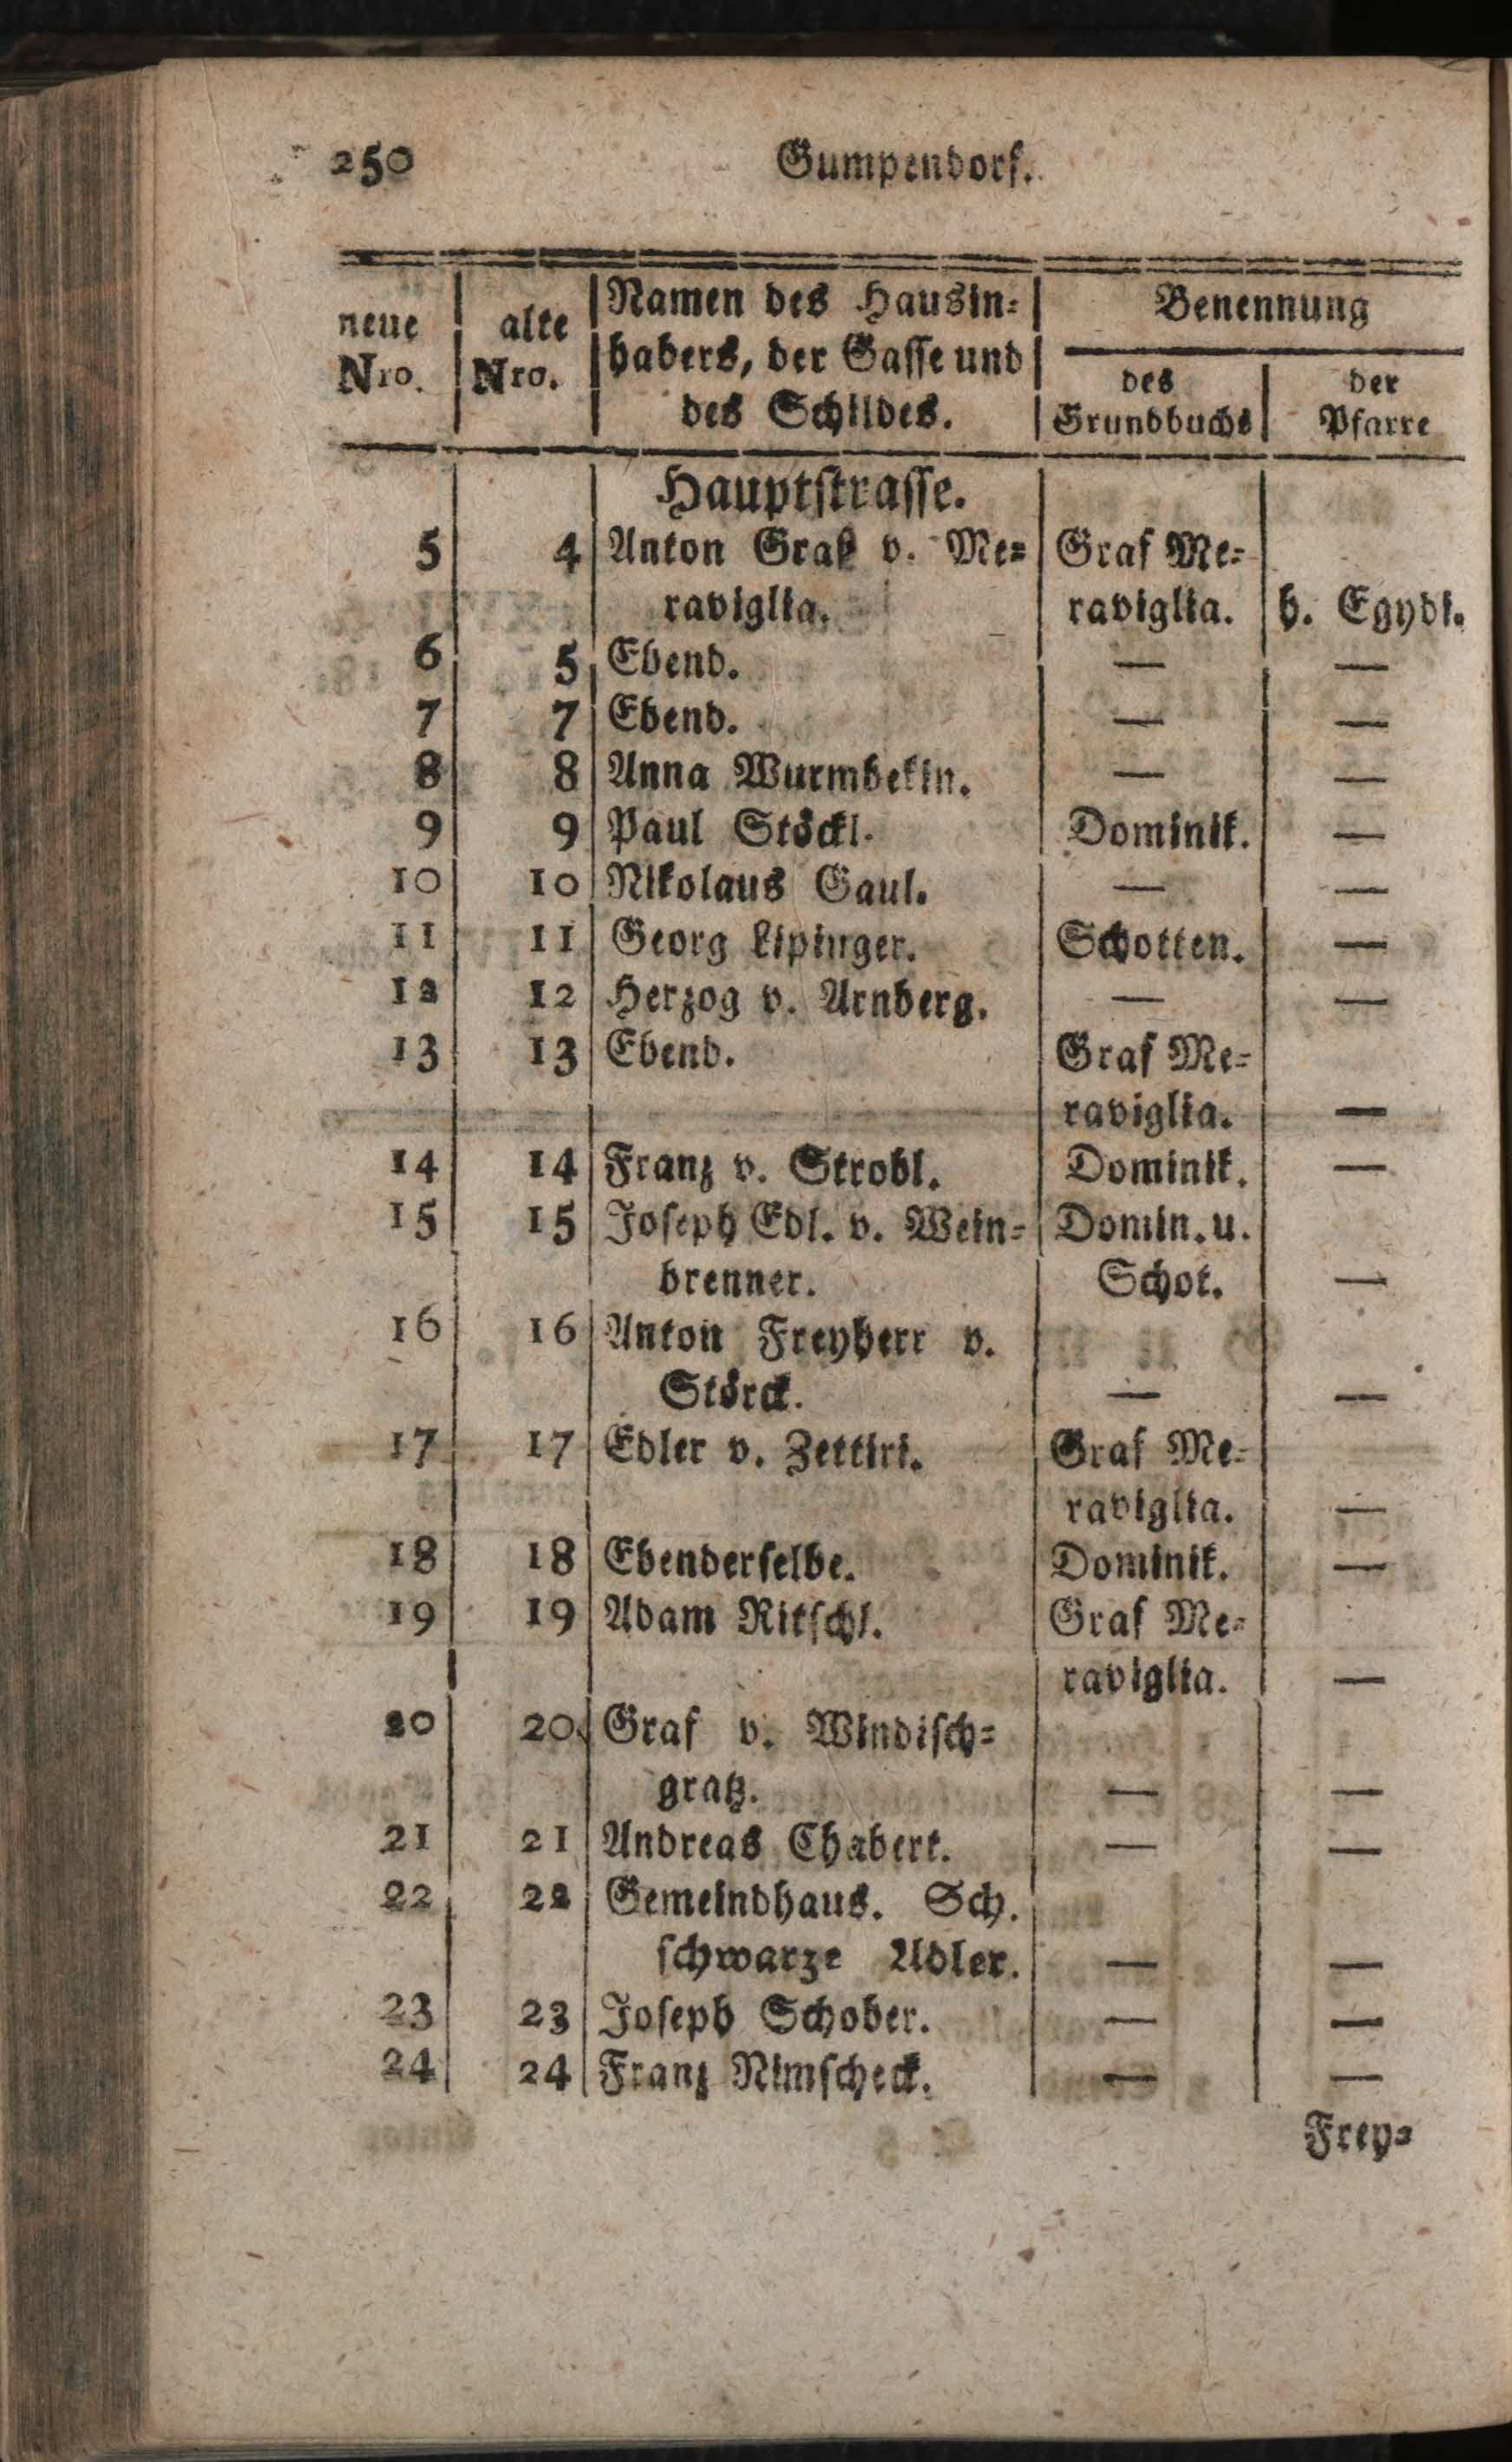 250 Gumpendorf.
neue Nro. | alte Nro. | Namen des Hausin= | Benennung
habers, der Gasse und | des | der
des Schildes. | Grundbuchs | Pfarre
Hauptstrasse.
5 | 4 | Anton Graf v. Me= | Graf Me=
raviglia. | raviglia. | h. Egydi.
6 | 5 | Ebend. | — | —
7 | 7 | Ebend. | — | —
8 | 8 | Anna Wurmbekin. | — | —
9 | 9 | Paul Stöckl. | Dominik. | —
10 | 10 | Nikolaus Gaul. | — | —
11 | 11 | Georg Lipinger. | Schotten. | —
12 | 12 | Herzog v. Arnberg. | — | —
13 | 13 | Ebend. | Graf Me=
raviglia. | —
14 | 14 | Franz v. Strobl. | Dominik. | —
15 | 15 | Joseph Edl. v. Wein= | Domin. u.
brenner. | Schot. | —
16 | 16 | Anton Freyherr v.
Störck. | — | —
17 | 17 | Edler v. Zettiri. | Graf Me=
raviglia. | —
18 | 18 | Ebenderselbe. | Dominik. | —
19 | 19 | Adam Ritschl. | Graf Me=
raviglia. | —
20 | 20 | Graf v. Windisch=
gratz. | — | —
21 | 21 | Andreas Chabert. | — | —
22 | 22 | Gemeindhaus. Sch.
schwarze Adler. | — | —
23 | 23 | Joseph Schober. | — | —
24 | 24 | Franz Nimscheck. | — | —
Frey=